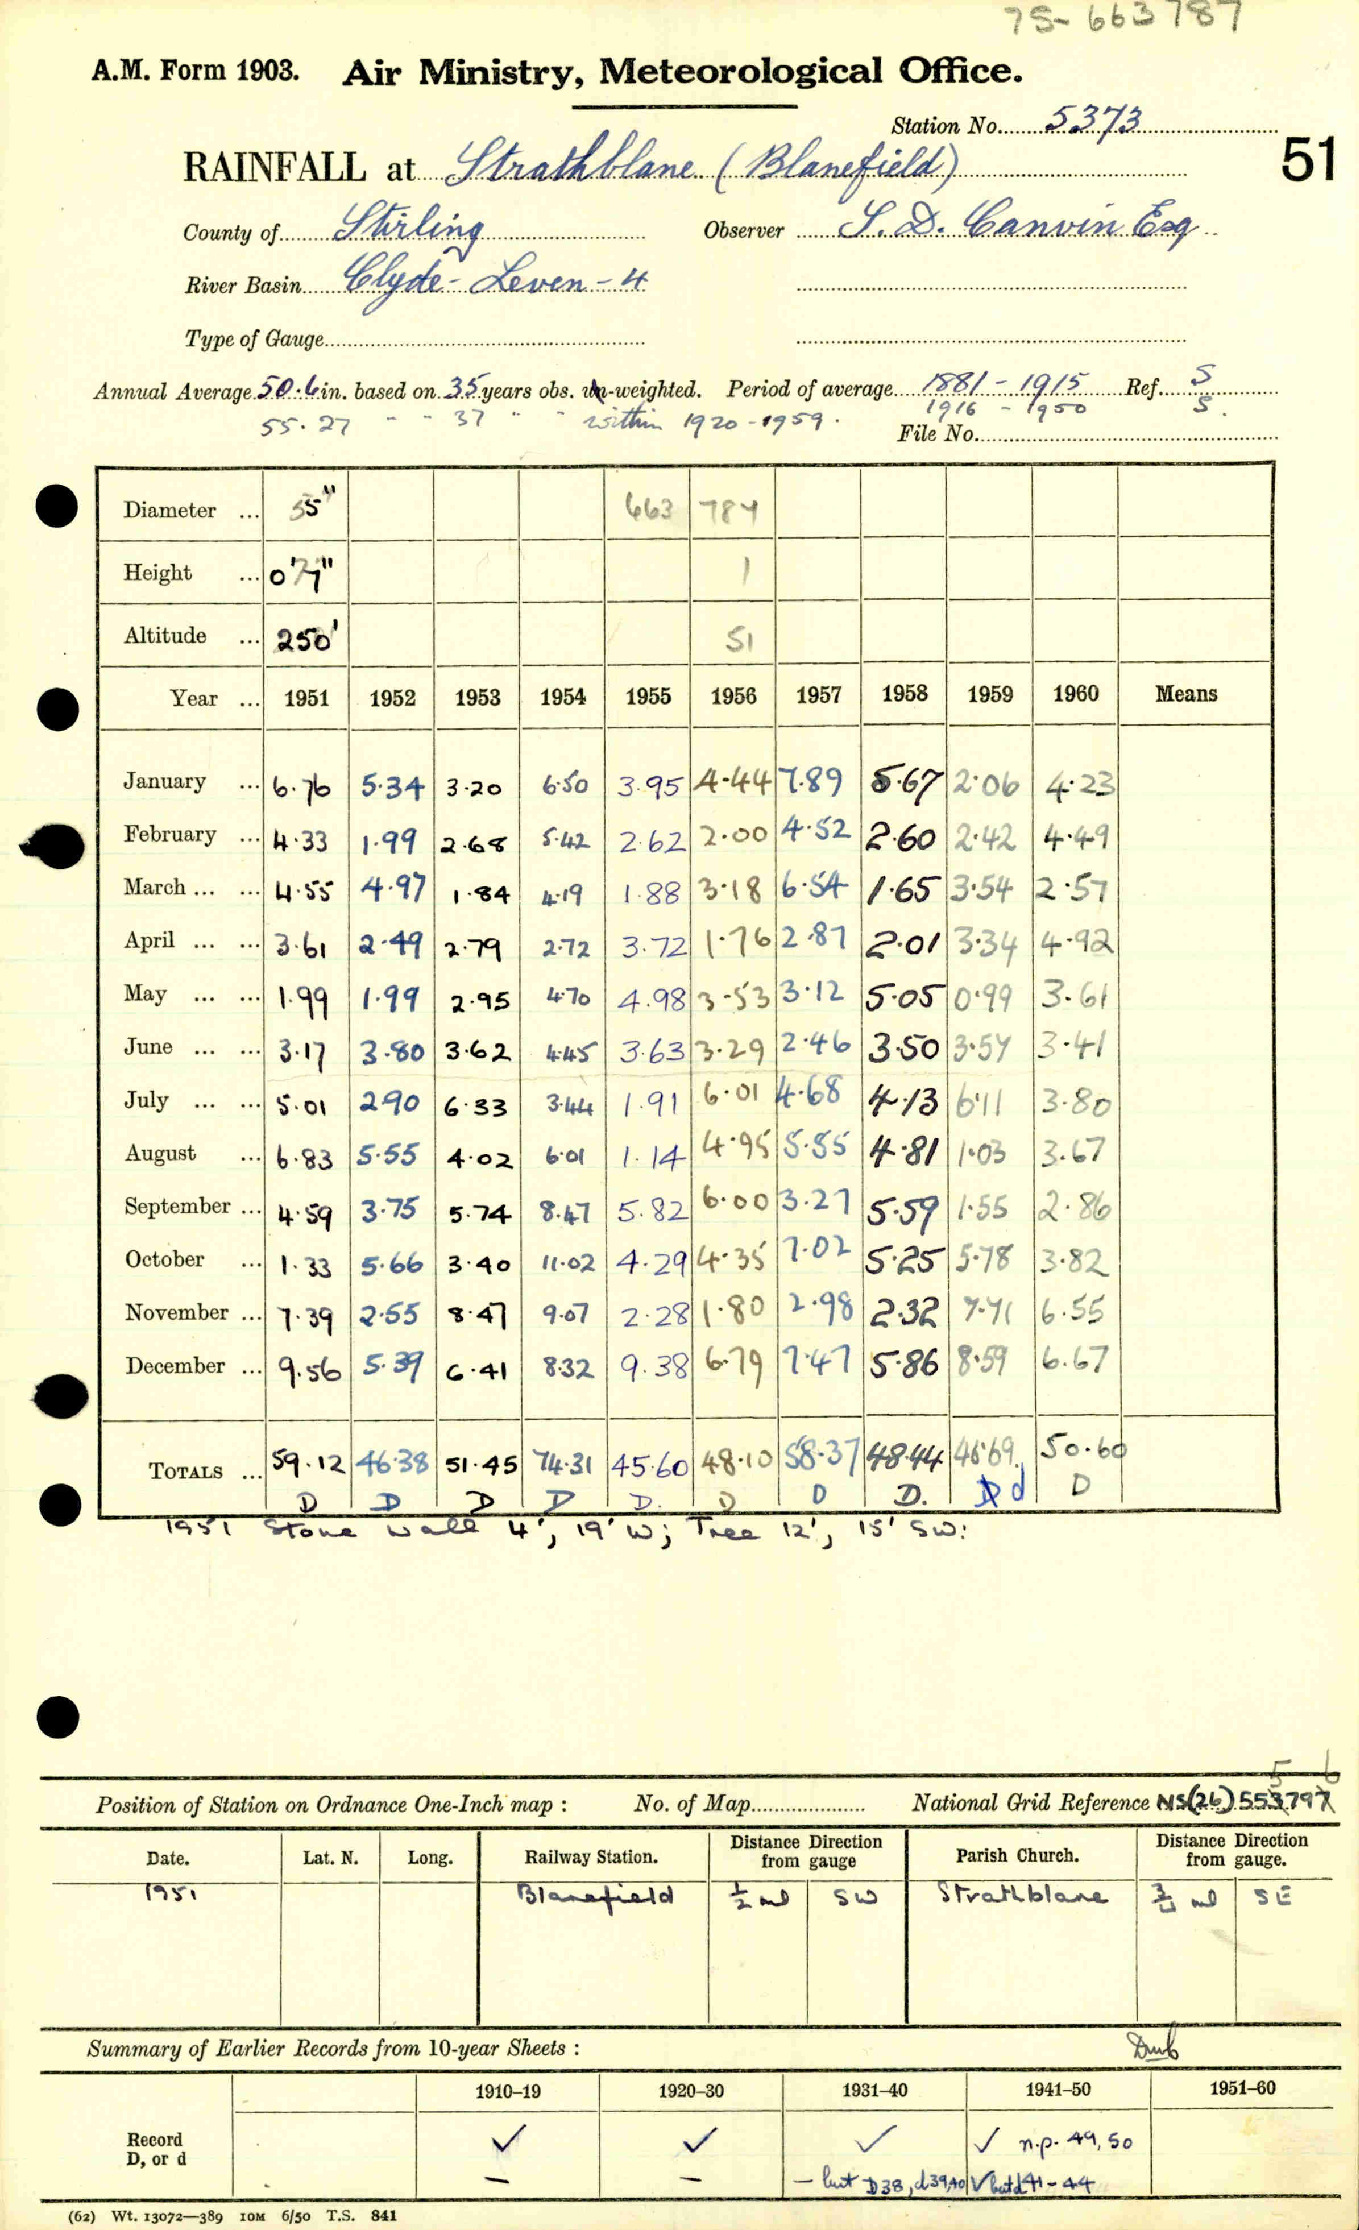 75-663787
A.M. Form 1903. Air Ministry, Meteorological Office.
Station No. 5373
51
RAINFALL at Strathblane (Blanefield)
County of Stirling Observer S. D. Canvin Esq
River Basin Clyde - Leven - 4
Type of Gauge
Annual Average 50.6 in. based on 35 years obs. un-weighted. Period of average 1881 - 1915 Ref. S
55.27 " " 37 " " within 1920-1959. 1916 - 1950 S.
File No.
Diameter ... 5" 663 784
Height ... 0'7" 1
Altitude ... 250' 51
Year ... 1951 1952 1953 1954 1955 1956 1957 1958 1959 1960 Means
January ... 6.76 5.34 3.20 6.50 3.95 4.44 7.89 5.67 2.06 4.23
February ... 4.33 1.99 2.68 5.42 2.62 2.00 4.52 2.60 2.42 4.49
March ... ... 4.55 4.97 1.84 4.19 1.88 3.18 6.54 1.65 3.54 2.57
April ... ... 3.61 2.49 2.79 2.72 3.72 1.76 2.87 2.01 3.34 4.92
May ... ... 1.99 1.99 2.95 4.70 4.98 3.53 3.12 5.05 0.99 3.61
June ... ... 3.17 3.80 3.62 4.45 3.63 3.29 2.46 3.50 3.57 3.41
July ... ... 5.01 2.90 6.33 3.44 1.91 6.01 4.68 4.13 6.11 3.80
August ... 6.83 5.55 4.02 6.01 1.14 4.95 5.55 4.81 1.03 3.67
September ... 4.59 3.75 5.74 8.47 5.82 6.00 3.27 5.59 1.55 2.86
October ... 1.33 5.66 3.40 11.02 4.29 4.35 7.02 5.25 5.78 3.82
November ... 7.39 2.55 8.47 9.07 2.28 1.80 2.98 2.32 7.71 6.55
December ... 9.56 5.39 6.41 8.32 9.38 6.79 7.47 5.86 8.59 6.67
TOTALS ... 59.12 46.38 51.45 74.31 45.60 48.10 58.37 48.44 46.69 50.60
D D D D D. D D D. D d D
1951 Stone wall 4', 19' W; Tree 12', 15' SW:
Position of Station on Ordnance One-Inch map : No. of Map National Grid Reference NS(26)553797
5 6
Date. Lat. N. Long. Railway Station. Distance from gauge Direction Parish Church. Distance Direction from gauge.
1951 Blanefield ½ ml SW Strathblane ¾ ml SE
Summary of Earlier Records from 10-year Sheets :
1910-19 1920-30 1931-40 1941-50 1951-60
Record ✓ ✓ ✓ ✓ n.p. 49, 50
D, or d - - - but D38, d39,40 ✓ but d 41-44
(62) Wt. 13072—389 10M 6/50 T.S. 841